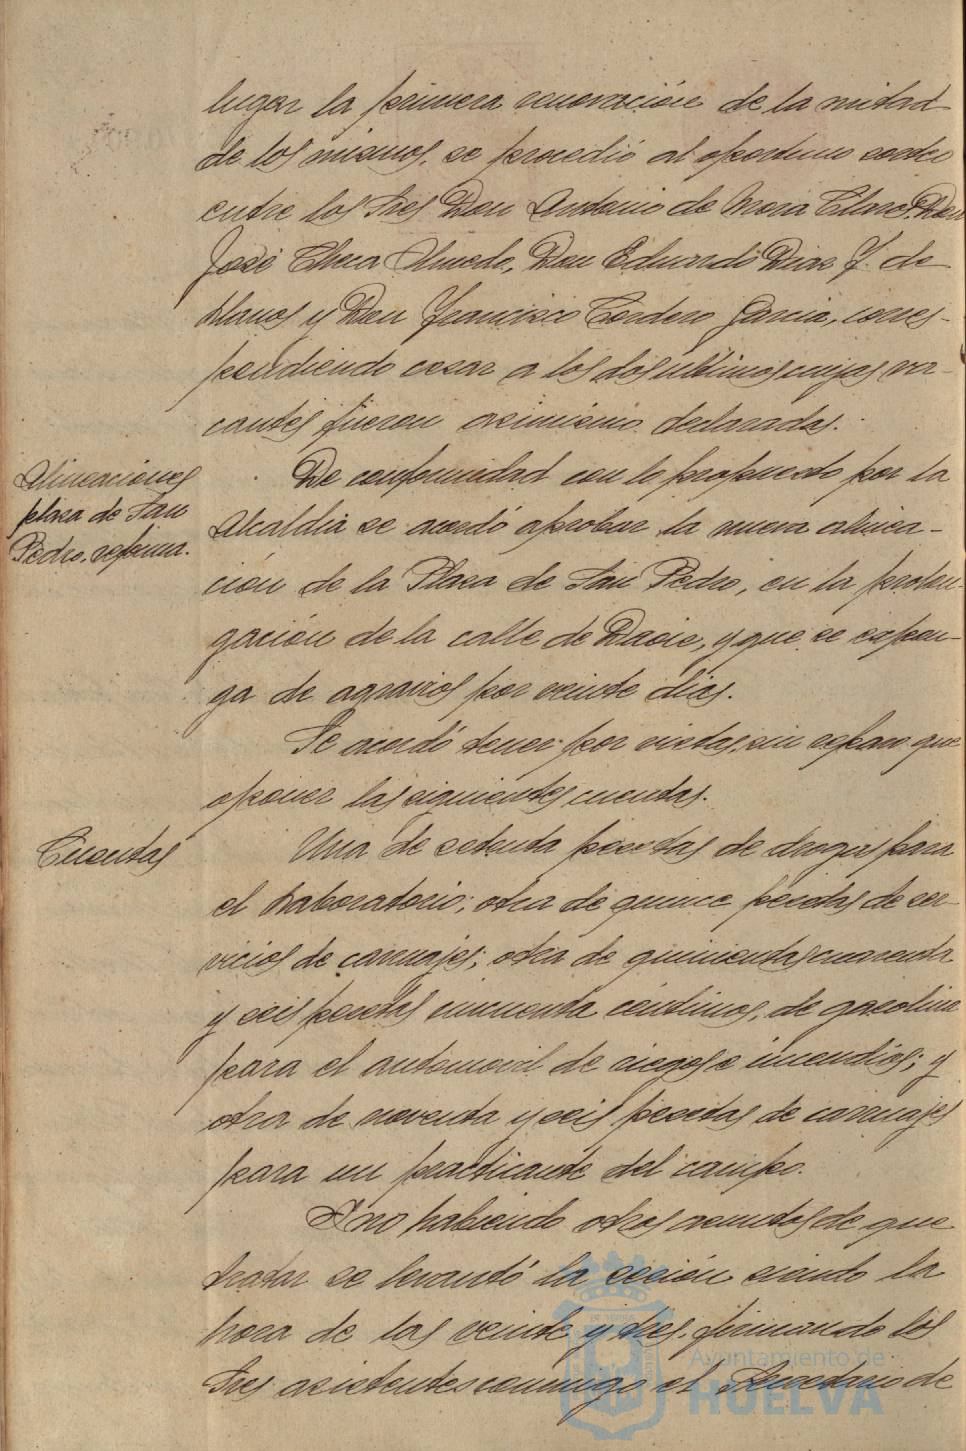 lugar la primera renovación de la mitad
de los mismos, se procedió al oportuno sorteo
entre los Sres Don Antonio de Mora Claros, Don
José Checa Olmedo, Don Eduardo Diaz F. de
Llanos y Don Francisco Cordero Garcia, corres-
pondiendo cesar a los dos últimos cuyas va-
cantes fueron asimismo declaradas.
Alineaciones
plaza de San
Pedro, reforma.
De conformidad con lo propuesto por la
Alcaldia se acordó aprobar la nueva alinea-
ción de la Plaza de San Pedro, en la prolon-
gación de la calle de Daoiz, y que se expon-
ga de agravios por veinte dias.
Se acordó tener por vistas, sin reparo que
oponer las siguientes cuentas.
Cuentas
Una de setenta pesetas de drogas para
el Laboratorio; otra de quince pesetas de ser-
vicios de carruajes; otra de quinientas cuarenta
y seis pesetas cincuenta céntimos, de gasolina
para el automovil de riegos e incendios; y
otra de noventa y seis pesetas de carruajes
para un practicante del campo.
Y no habiendo otros asuntos de que
tratar se levantó la sesión siendo la
hora de las veinte y tres, firmando los
Sres asistentes conmigo el Secretario de
Ayuntamiento de
HUELVA